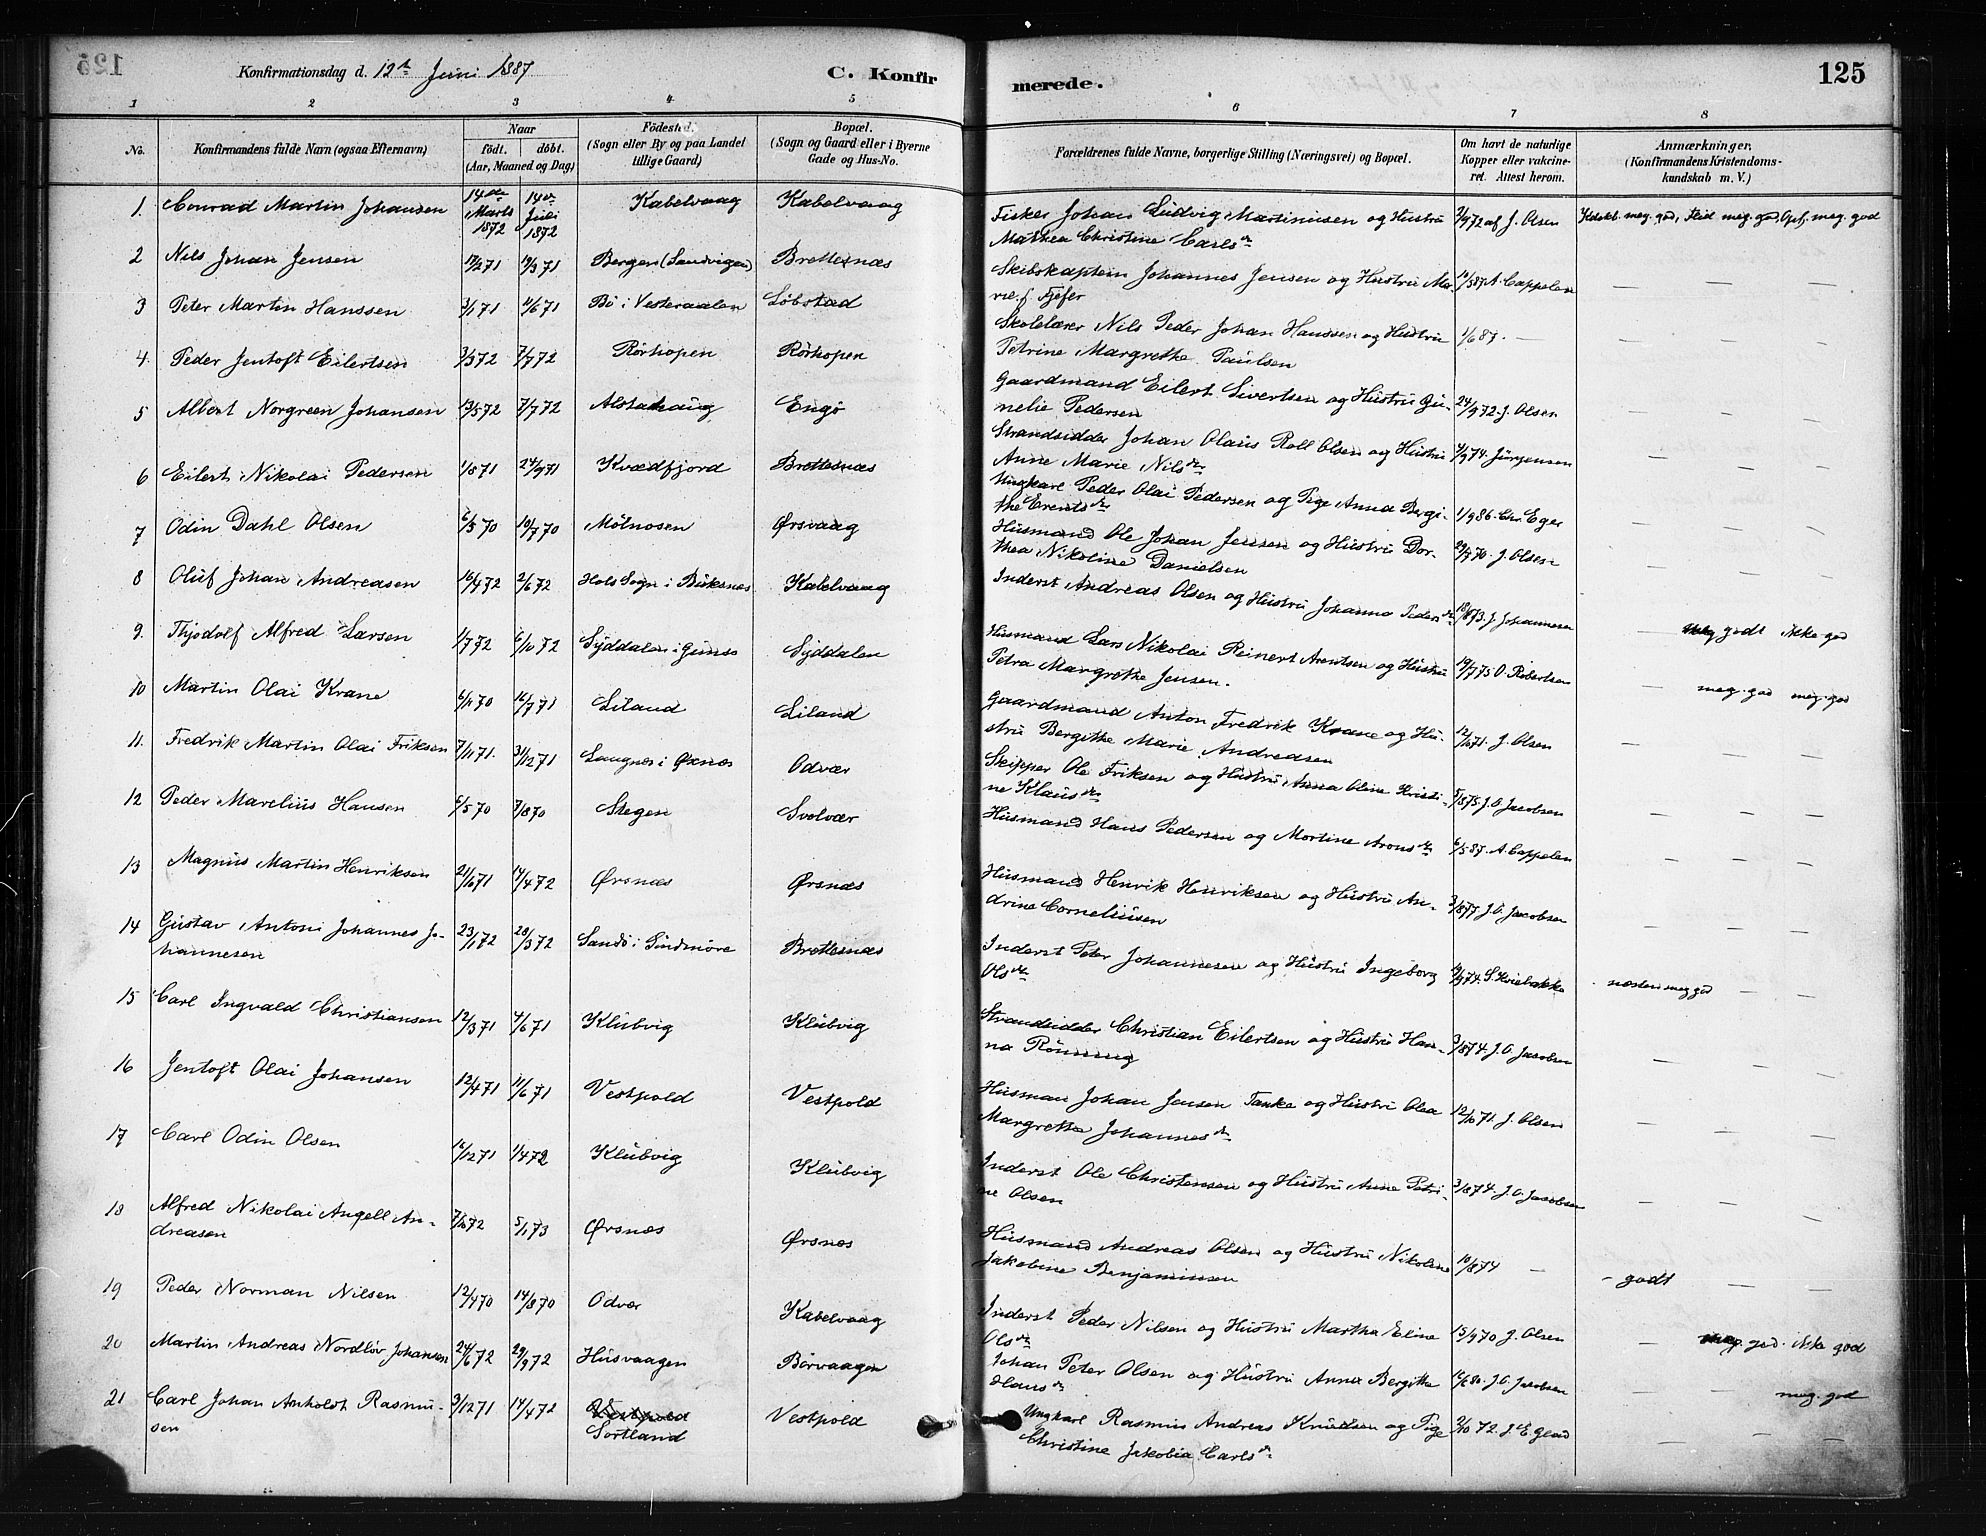 Konfirmationsdag d. 12te Juni 1887
C. Konfirmerede.
125
1 2 3 4 5 6 7 8
No.
Konfirmandens fulde Navn (ogsaa Efternavn)
Naar
födt. döbt.
(Aar, Maaned og Dag)
Födested.
(Sogn eller By og paa Landet
tillige Gaard)
Bopæl.
(Sogn og Gaard eller i Byerne
Gade og Hus-No.
Forældrenes fulde Navne, borgerlige Stilling (Næringsvei) og Bopæl.
Om havt de naturlige
Kopper eller vakcine-
ret. Attest herom.
Anmærkninger.
(Konfirmandens Kristendoms-
kundskab m. V.)
1. Conrad Martin Johansen 14de Marts 1872 14de Juli 1872 Kabelvaag Kabelvaag Fisker Johan Ludvig Martinusen og Hustru
Mathea Christine Carlsdr 2/9 72 af J. Olsen Kdskb. meg. god, Flid meg. god, Opf. meg. god
2 Nils Johan Jensen 17/2 71 19/3 71 Bergen (Sandvigen) Brettesnæs Skibskaptein Johannes Jensen og Hustru Ma-
rie f. Fjefer 10/5 87 A. Cappelen — — —
3 Peter Martin Hanssen 3/1 71 11/6 71 Bö i Vesteraalen Löbstad Skolelærer Nils Peder Johan Hanssen og Hustru
Petrine Margrethe Paulsen 1/6 87. — — — —
4. Peder Jentoft Eilertsen 3/3 72 7/7 72 Rörhopen Rörhopen Gaardmand Eilert Sivertsen og Hustru Gu-
nelie Pedersen 24/9 72. J. Olsen — — —
5 Albert Norgreen Johansen 13/5 72 7/7 72 Alstahaug Engö Strandsidder Johan Olaus Roll Olsen og Hustru
Anne Marie Nilsdr 4/9 74. Jürgensen — — —
6 Eilert Nikolai Pedersen 1/5 71 24/9 71 Kvædfjord Brettesnæs Ungkarl Peder Olai Pedersen og Pige Anna Bergi-
the Erentsdr 1/9 86. Chr. Eger — — —
7 Odin Dahl Olsen 6/5 70 10/7 70 Mölnosen Ørsvaag Husmand Ole Johan Jensen og Hustru Dor-
thea Nikoline Danielsen 29/7 70. J. Olsen — — —
8 Oluf Johan Andreasen 16/4 72 2/6 72 Hols Sogn i Buksnæs Kabelvaag Inderst Andreas Olsen og Hustru Johanna Pedersdr 18/8 73. J. Johannesen — godt ikke god
9. Thjodolf Alfred Larsen 1/7 72 6/10 72 Syddalen i Gimsö Syddalen Husmand Lars Nikolai Reinert Arentsen og Hustru
Petra Margrethe Jensen. 19/7 75 O. Robertsen — meg. god meg. god
10 Martin Olai Krane 6/11 70 16/7 71 Liland Liland Gaardmand Anton Fredrik Krane og Hu-
stru Bergithe Marie Andreasen 12/10 71. J. Olsen — — —
11. Fredrik Martin Olai Friksen 7/11 71. 31/12 71 Langnes i Øxnæs Odvær Skipper Ole Friksen og Hustru Anna Oline Kristi-
ne Klausdr 5/8 75. J. O. Jacobsen — — —
12 Peder Marelius Hansen 6/5 70 7/8 70 Stegen Svolvær Husmand Hans Pedersen og Mortine Aronsdr 6/5 87. A. Cappelen — — —
13 Magnus Martin Henriksen 21/10 71 14/4 72 Ørsnæs Ørsnæs Husmand Henrik Henriksen og Hustru An-
drine Corneliusen 3/8 77. J. O. Jacobsen — — —
14 Gustav Antoni Johannes Jo-
hannesen 23/1 72 28/3 72 Sandö i Söndmöre Brettesnæs Inderst Peter Johannesen og Hustru Ingeborg
Olsdr 4/9 74. næsten meg. god — —
15 Carl Ingvald Christiansen 12/3 71 4/6 71 Klubvig Klubvig Strandsidder Christian Eilertsen og Hustru Han-
na Rönning 3/8 74. J. O. Jacobsen — — —
16 Jentoft Olai Johansen 12/4 71 11/6 71 Vestpold Vestpold Husman Johan Jensen Tanke og Hustru Olea
Margrethe Johannesdr 12/10 71. J. Olsen — — —
17 Carl Odin Olsen 16/12 71 1/4 72 Klubvig Klubvig Inderst Ole Christensen og Hustru Anne Petri-
ne Olsen 3/8 74. J. O. Jacobsen — — —
18 Alfred Nikolai Angell An-
dreasen 7/10 72 5/1 73 Ørsnæs Ørsnæs Husmand Andreas Olsen og Hustru Nikoline
Jakobine Benjaminsen 10/8 74 — – godt — —
19 Peder Norman Nilsen 12/4 70 14/8 70 Odvær Kabelvaag Inderst Peder Nilsen og Hustru Martha Eline
Olsdr 15/9 70 J. Olsen — god. ikke god
20 Martin Andreas Nordlöv Johansen 24/6 72 29/9 72 Husvaagen Börvaagen Johan Peter Olsen og Hustru Anna Bergitte
Hansdr 12/6 80. J. O. Jacobsen — — meg. god
21 Carl Johan Anholdt Rasmu-
sen 3/12 71 14/4 72 Vestpold
Sortland Vestpold Ungkarl Rasmus Andreas Knudsen og Pige
Christine Jakobia Carlsdr 2/10 72. J. E. Glad — — —